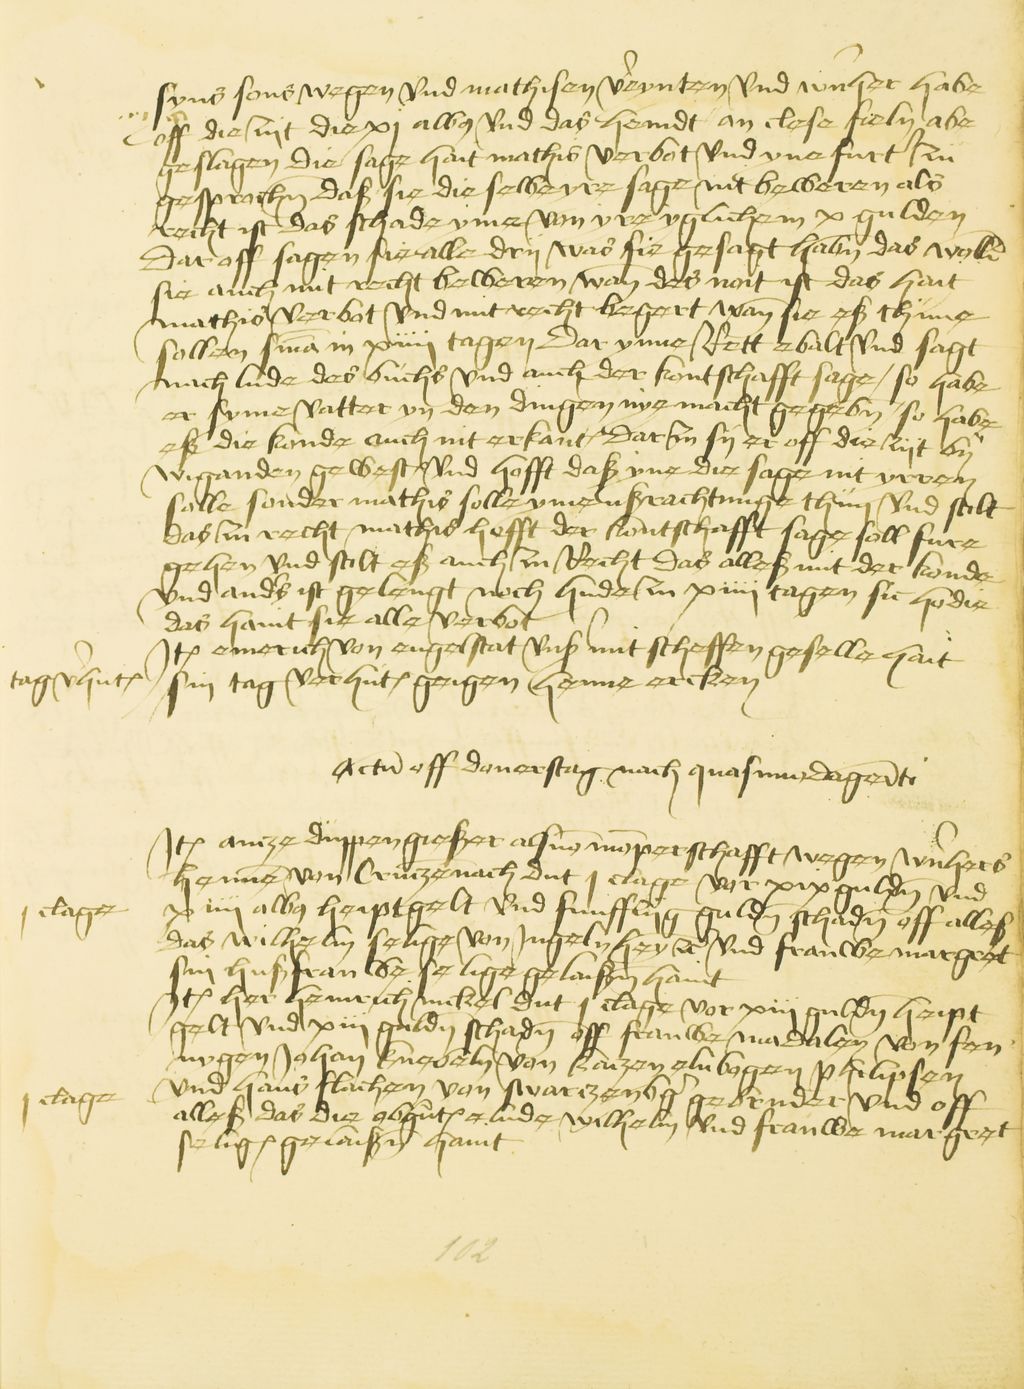 syns sons wegen vnd mathisen v'eynten vnd w'nher habe
off die zijt die xj alb9 vnd das hemdt an clese fieln abe
geslagen die sage hait mathis verbot vnd yne furt zu
gesprochn daß sie die selbe yre sage nit beweren als
recht ist das schade yme von yre yglichem x gulden
Dar off sagen sie alle drij was sie gesagt habn das wolln
sie auch mit recht beweren wan des noit ist das hait
mathis verbot vnd mit recht begert wan sie eß thune
sollen in xiiij tagen Dar yme ebalt vnd sagt
nach lude des buchs vnd auch der kontschafft sage / so habe
er syme vatter yn den dingen nye macht gegebn / so habe
eß die konde auch nit erkant / Dar zu sij er off die zijt by
wiganden gewest vnd hofft daß yne die sage nit yrren
solle sonder mathis solle yme ußrachtunge thun vnd stilt
das zu recht mathis hofft der kontschafft sage soll fure
gehen vnd stilt eß auch zu Recht Das alleß mit der konde
vnd and's ist gelengt noch hude zu xiiij tagen sic hodie
das haint sie alle verbot
Jt emerich von engelstat vnß mit scheffen geselle hait
tag v'hut sin tag verhut geigen henne ercken
Actu off donerstag nach quasimodageniti
Jt antze duppengießer als von momperschafft wegen w'nhers
henne von Cruczenach dut j clage vor xix guldn vnd
j clage x iiij alb9 heiptgelt vnd funfftzig guldn schadn off alleß
das wilhelm selige von Jngelnheym vnd frauwe margret
sin hußfrauwe selige gelaißn haint
Jt her heinrich nickel dut j clage vor xiij guldn heipt
gelt vnd xiij guldn schadn off frauwe madalen von fen
nygen Johan kneveln von katzenelnbogen philipsen
j clage vnd hans flachen von swarczenb'g gebruder vnd off
alleß das die obgnt elude wilhelm vnd frauwe margret
selig gelaißn haint
102